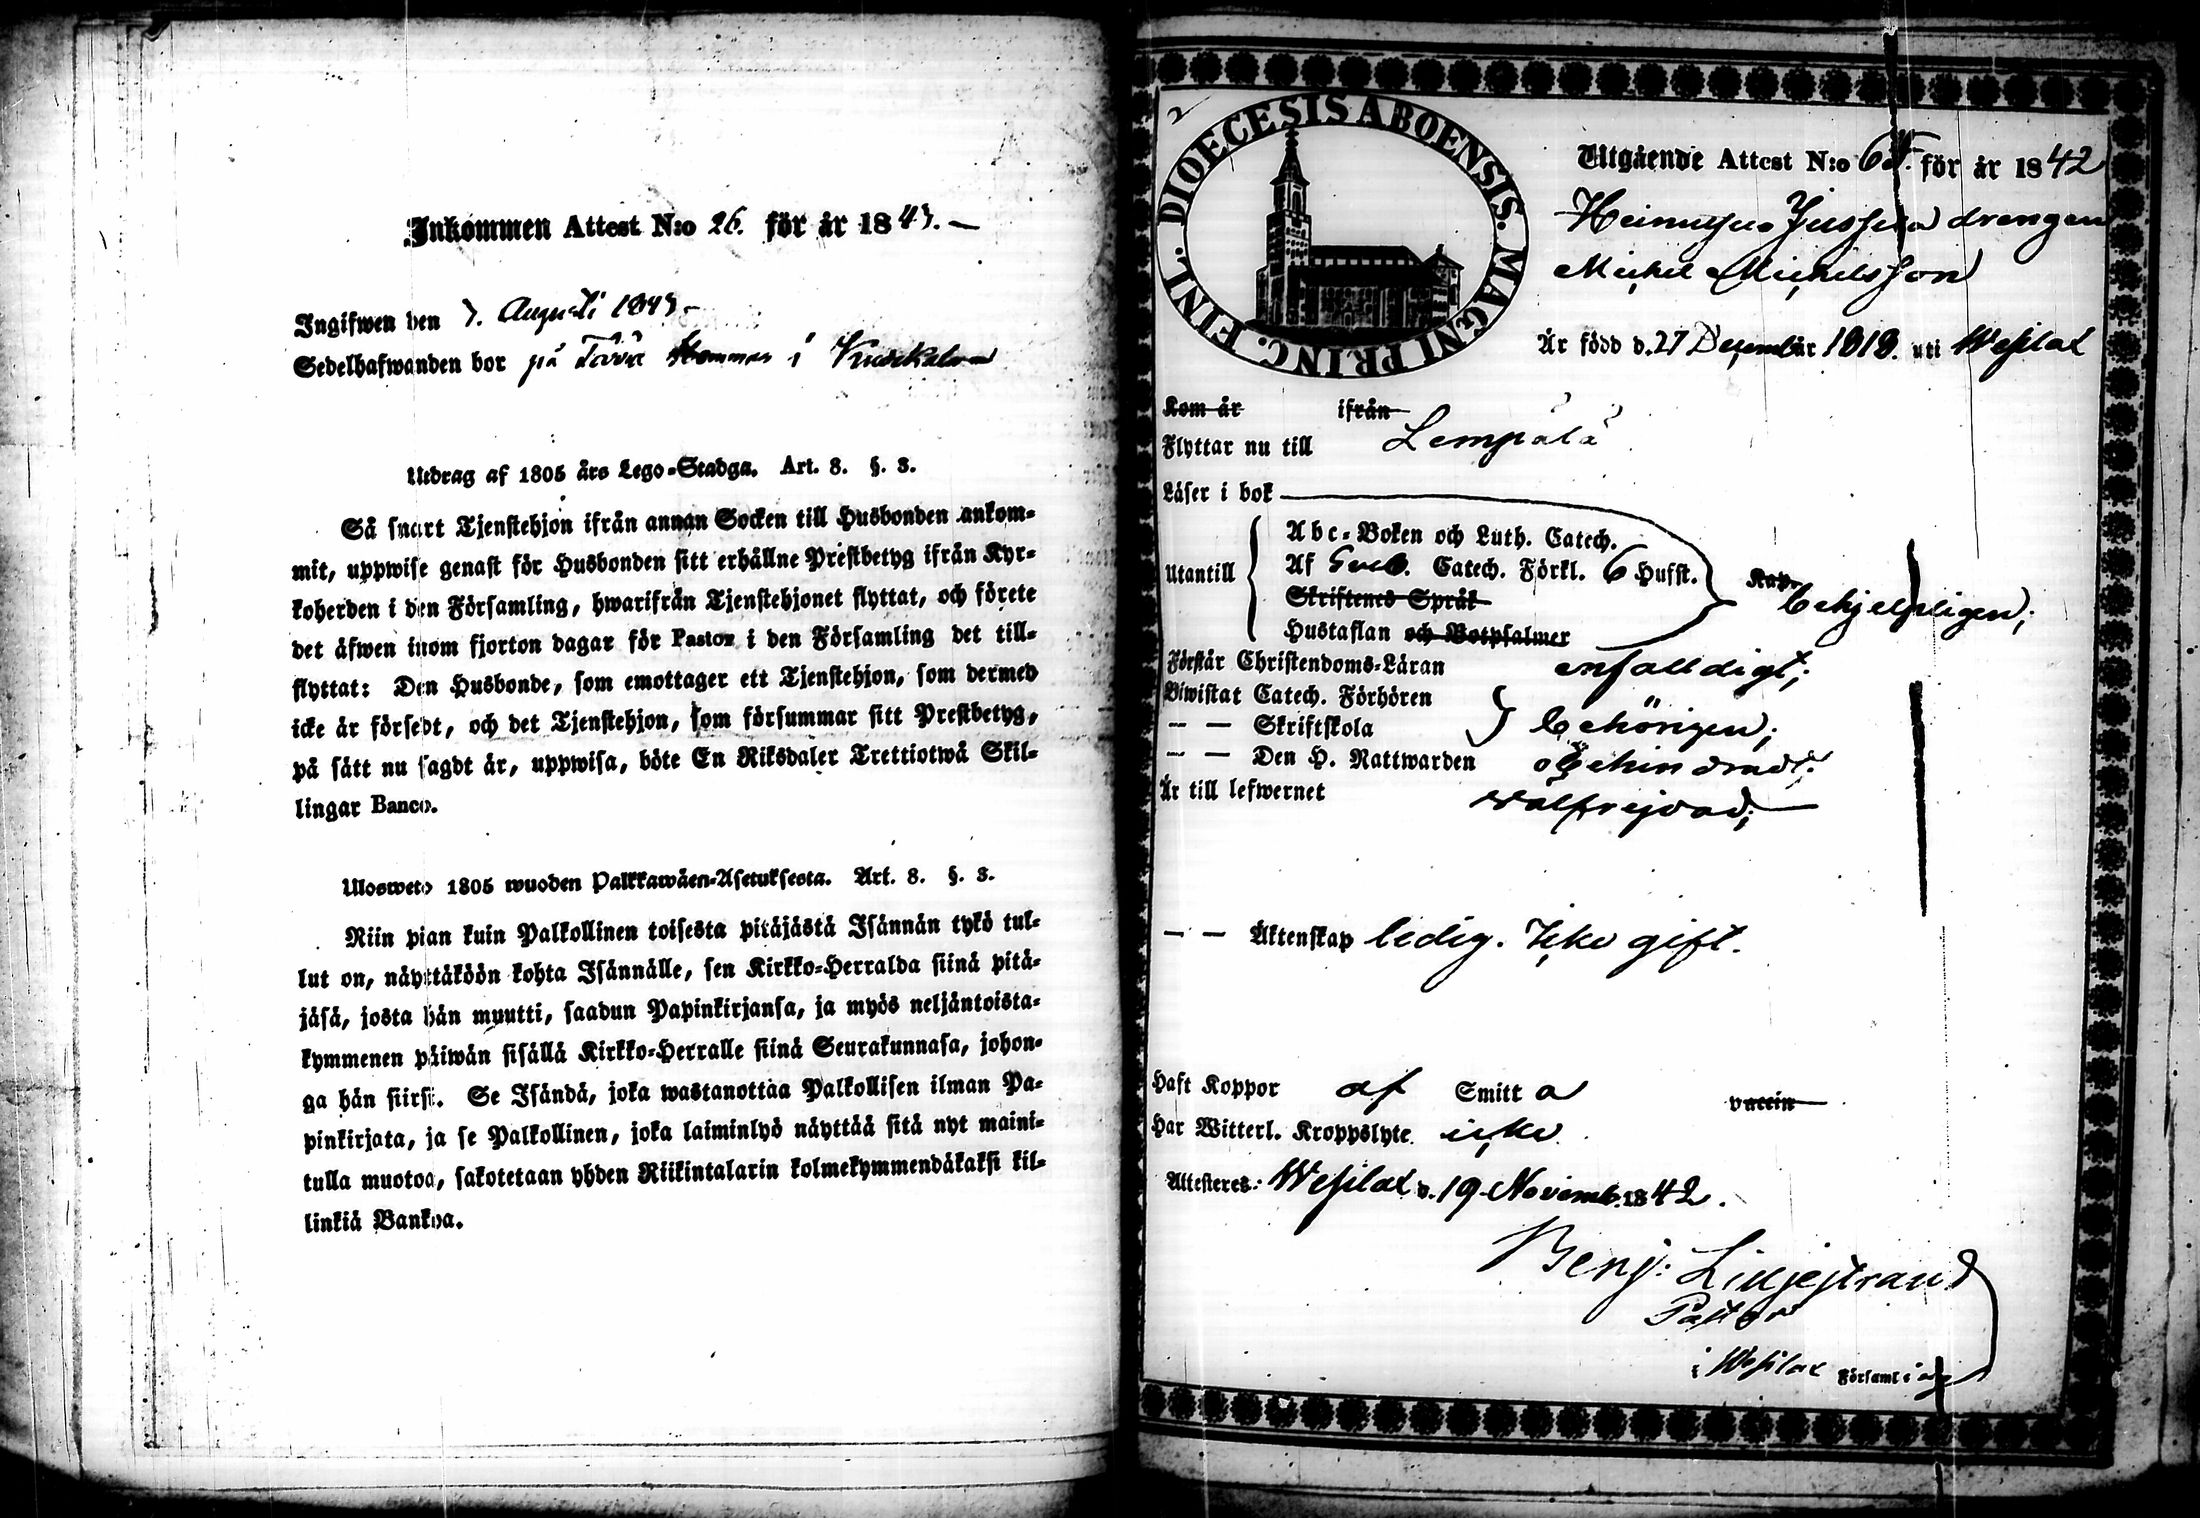 Inkommen Attest N:o 26. för år 1843. —
Ingifwen den 7. Augusti 1843 –
Sedelhafwanden bor på i
Utdrag af 1805 års Lego-Stadga. Art. 8. §. 3.
Så snart Tjenstehjon ifrån annan Socken till Husbonden ankom-
mit, uppwise genast för Husbonden sitt erhållne Prestbetyg ifrån Kyr-
koherden i den Församling, hwarifrån Tjenstehjonet flyttat, och förete
det äfwen inom fjorton dagar för Pastor i den Församling det till-
flyttat: Den Husbonde, som emottager ett Tjenstehjon, som dermed
icke är försedt, och det Tjenstehjon, som försummar sitt Prestbetyg,
på sätt nu sagdt är, uppwisa, böte En Riksdaler Trettiotwå Skil-
lingar Banco.
Ulosweto 1805 wuoden Palkkawäen-Asetuksesta. Art. 8. §. 3.
Niin pian kuin Palkollinen toisesta pitäjästä Isännän tykö tul-
lut on, näyttäköön kohta Isännälle, sen Kirkko-Herralda siinä pitä-
jäsä, josta hän muutti, saadun Papinkirjansa, ja myös neljäntoista-
kymmenen päiwän sisällä Kirkko-Herralle siinä Seurakunnasa, johon-
ga hän siirsi. Se Isändä, joka wastanottaa Palkollisen ilman Pa-
pinkirjata, ja se Palkollinen, joka laiminlyö näyttää sitä nyt maini-
tulla muotoa, sakotetaan yhden Riikintalarin kolmekymmendäkaksi kil-
linkiä Bankoa.
DIOECESIS ABOENSIS. MAGNI PRINC. FINL.
Utgående Attest N:o för år 1842
drengen
Michel Michelsson
Är född d. 27 December 1818. uti Wesilax
Kom år ifrån
Flyttar nu till Lempälä
Läser i bok
Utantill
Abc-Boken och Luth. Catech.
Af Sveb. Catech. Förkl. 6 Hufst.
Skriftenes Språk
Hustaflan och Botpsalmer
behjelpligen;
Förstår Christendoms-Läran enfalldigt;
Biwistat Catech. Förhören
— — Skriftskola
behörigen;
— — Den H. Nattwarden obehindradt.
Är till lefwernet wälfrejdad;
— — Äktenskap ledig. Icke gift.
Haft Koppor af Smitt a vaccin
Har Witterl. Kroppslyte icke
Attesteres: Wesilax d. 19 Novemb. 1842.
Benj: Liljestrand
Pastor
i Wesilax Församling